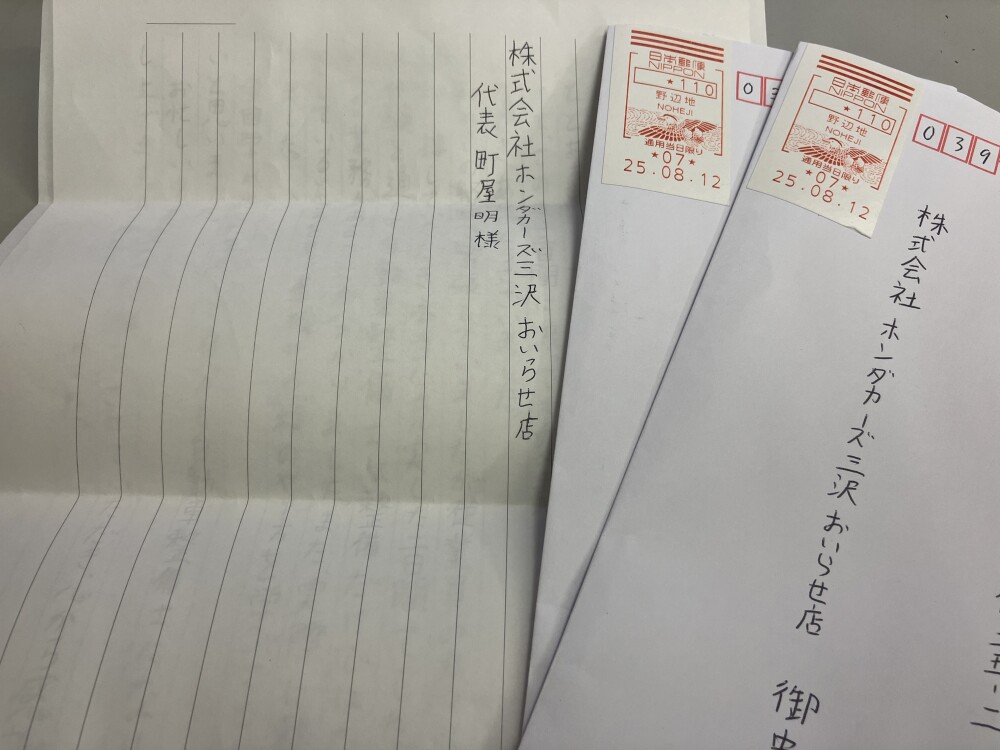 株式会社ホンダカーズ三沢おいらせ店
代表 町屋明様
日本郵便
NIPPON
★110
野辺地
NOHEJI
適用当日限り
★07★
25.08.12
0
日本郵便
NIPPON
★110
野辺地
NOHEJI
適用当日限り
★07★
25.08.12
039
株式会社 ホンダカーズ三沢おいらせ店 御中